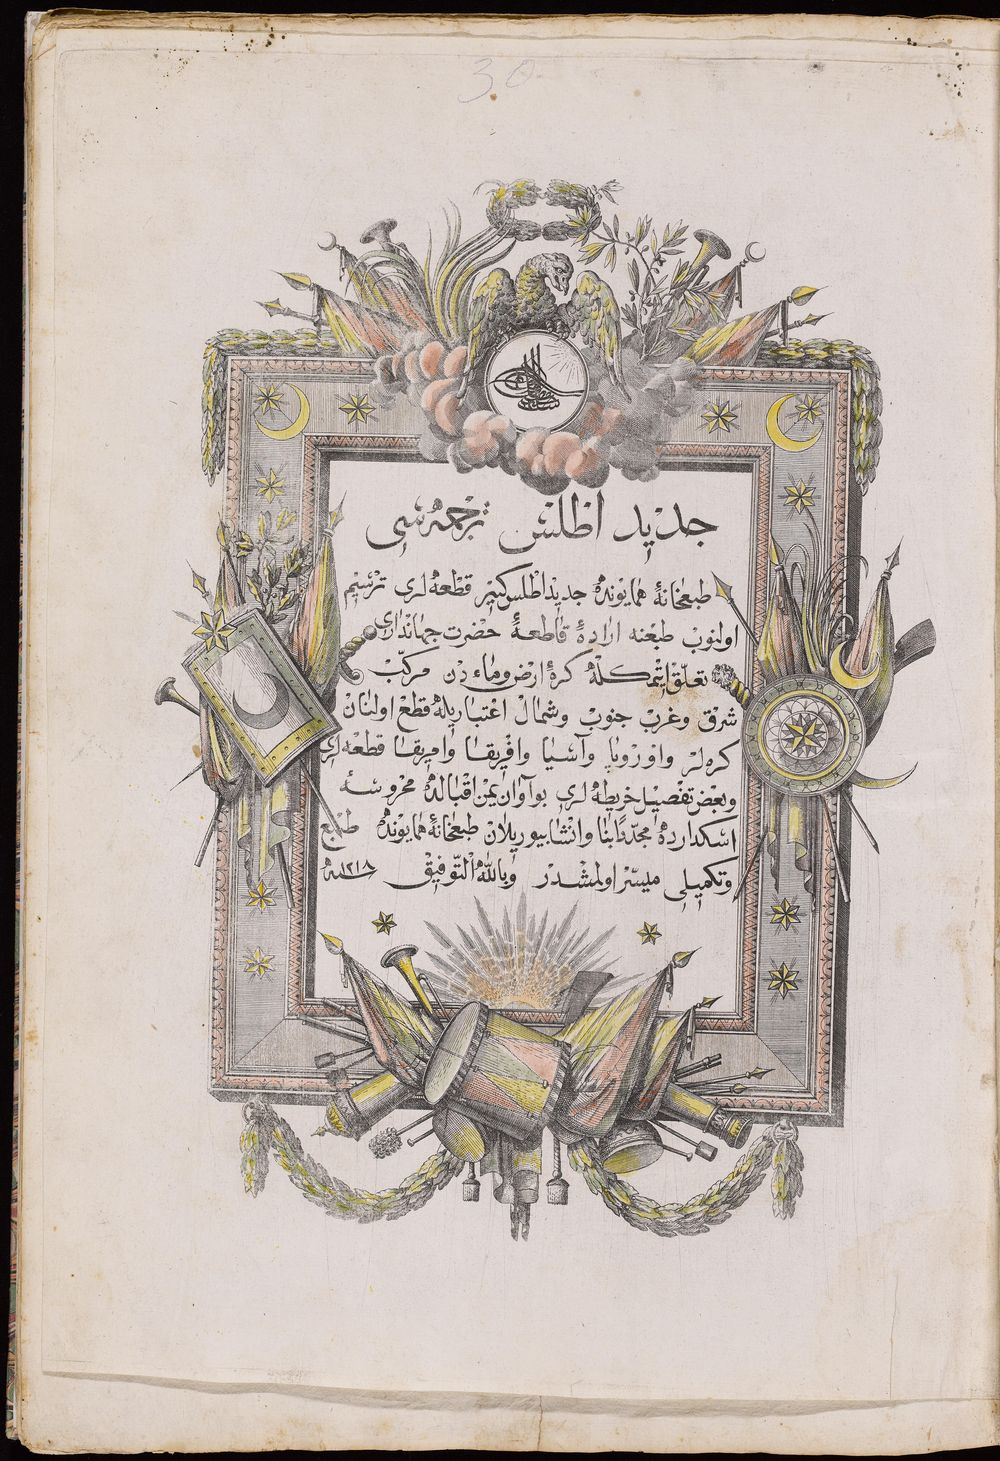 30
جديد اطلس ترجمه سى
طبعخانهٔ همايونده جديد اطلس كبير قطعه لرى ترسيم
اولنوب طبعنه ارادهٔ قاطعهٔ حضرت جهاندارى
تعلّق ايتمكله كرهٔ ارض وماء دن مركّب
شرق وغرب جنوب وشمال اعتباريله قطع اولنان
كره لر واوروپا وآسيا وافريقا وامريقا قطعه لرى
وبعض تفصيل خريطه لرى بو آوان يمن اقبالده محروسهٔ
اسكدارده مجدّدًا بنا وانشا بيوريلان طبعخانهٔ همايونده طبع
وتكميلى ميسّر اولمشدر وبالله التّوفيق سنه ١٢١٨